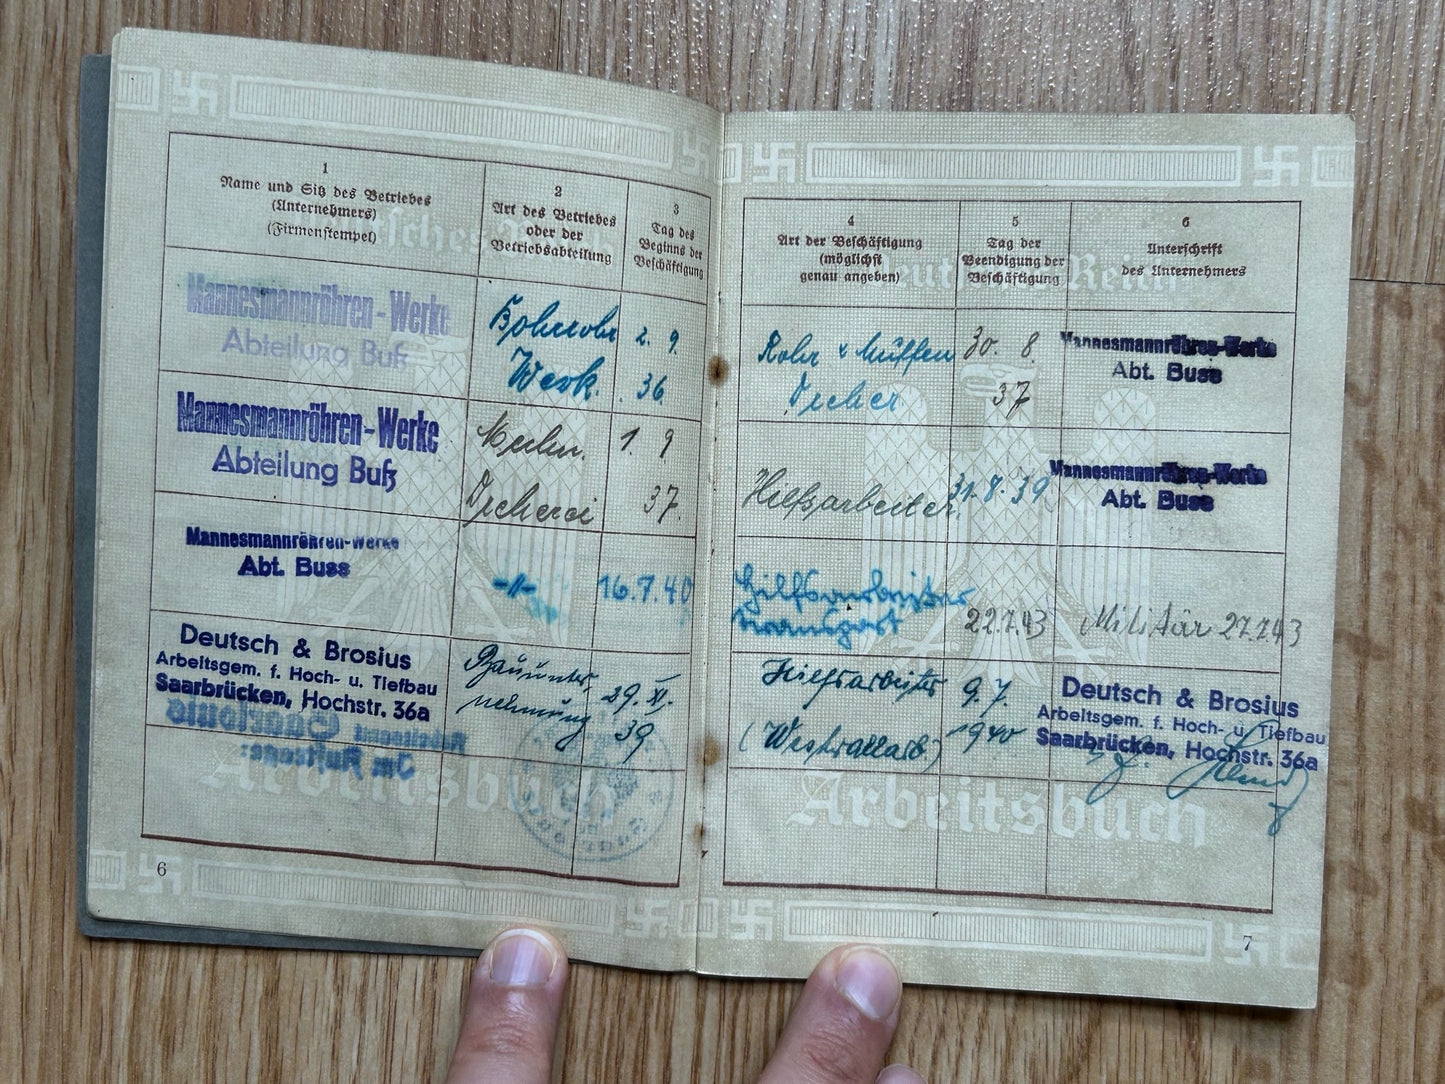 1
Name und Sitz des Betriebes
(Unternehmers)
(Firmenstempel)
2
Art des Betriebes
oder der
Betriebsabteilung
3
Tag des
Beginns der
Beschäftigung
Mannesmannröhren-Werke
Abteilung Buß
Werk.
2. 9.
36.
Mannesmannröhren-Werke
Abteilung Buß
Dreherei
1. 9
37.
Mannesmannröhren-Werke
Abt. Buss
-"-
16.7.40
Deutsch & Brosius
Arbeitsgem. f. Hoch- u. Tiefbau
Saarbrücken, Hochstr. 36a
Bauunter
nehmung
29. XI.
39
Saarlouis
Im Auftrage:
Arbeitsbuch
6
4
Art der Beschäftigung
(möglichst
genau angeben)
5
Tag der
Beendigung der
Beschäftigung
6
Unterschrift
des Unternehmers
Deutsches Reich
Rohr & Muffen
Dreher
30. 8.
37
Mannesmannröhren-Werke
Abt. Buss
Hilfsarbeiter.
31.8.39
Mannesmannröhren-Werke
Abt. Buss
Hilfsarbeiter
Transport
22.7.43
Militär 27.7.43
Hilfsarbeiter
(Westwallarb.)
9.7.
1940
Deutsch & Brosius
Arbeitsgem. f. Hoch- u. Tiefbau
Saarbrücken, Hochstr. 36a
Arbeitsbuch
7